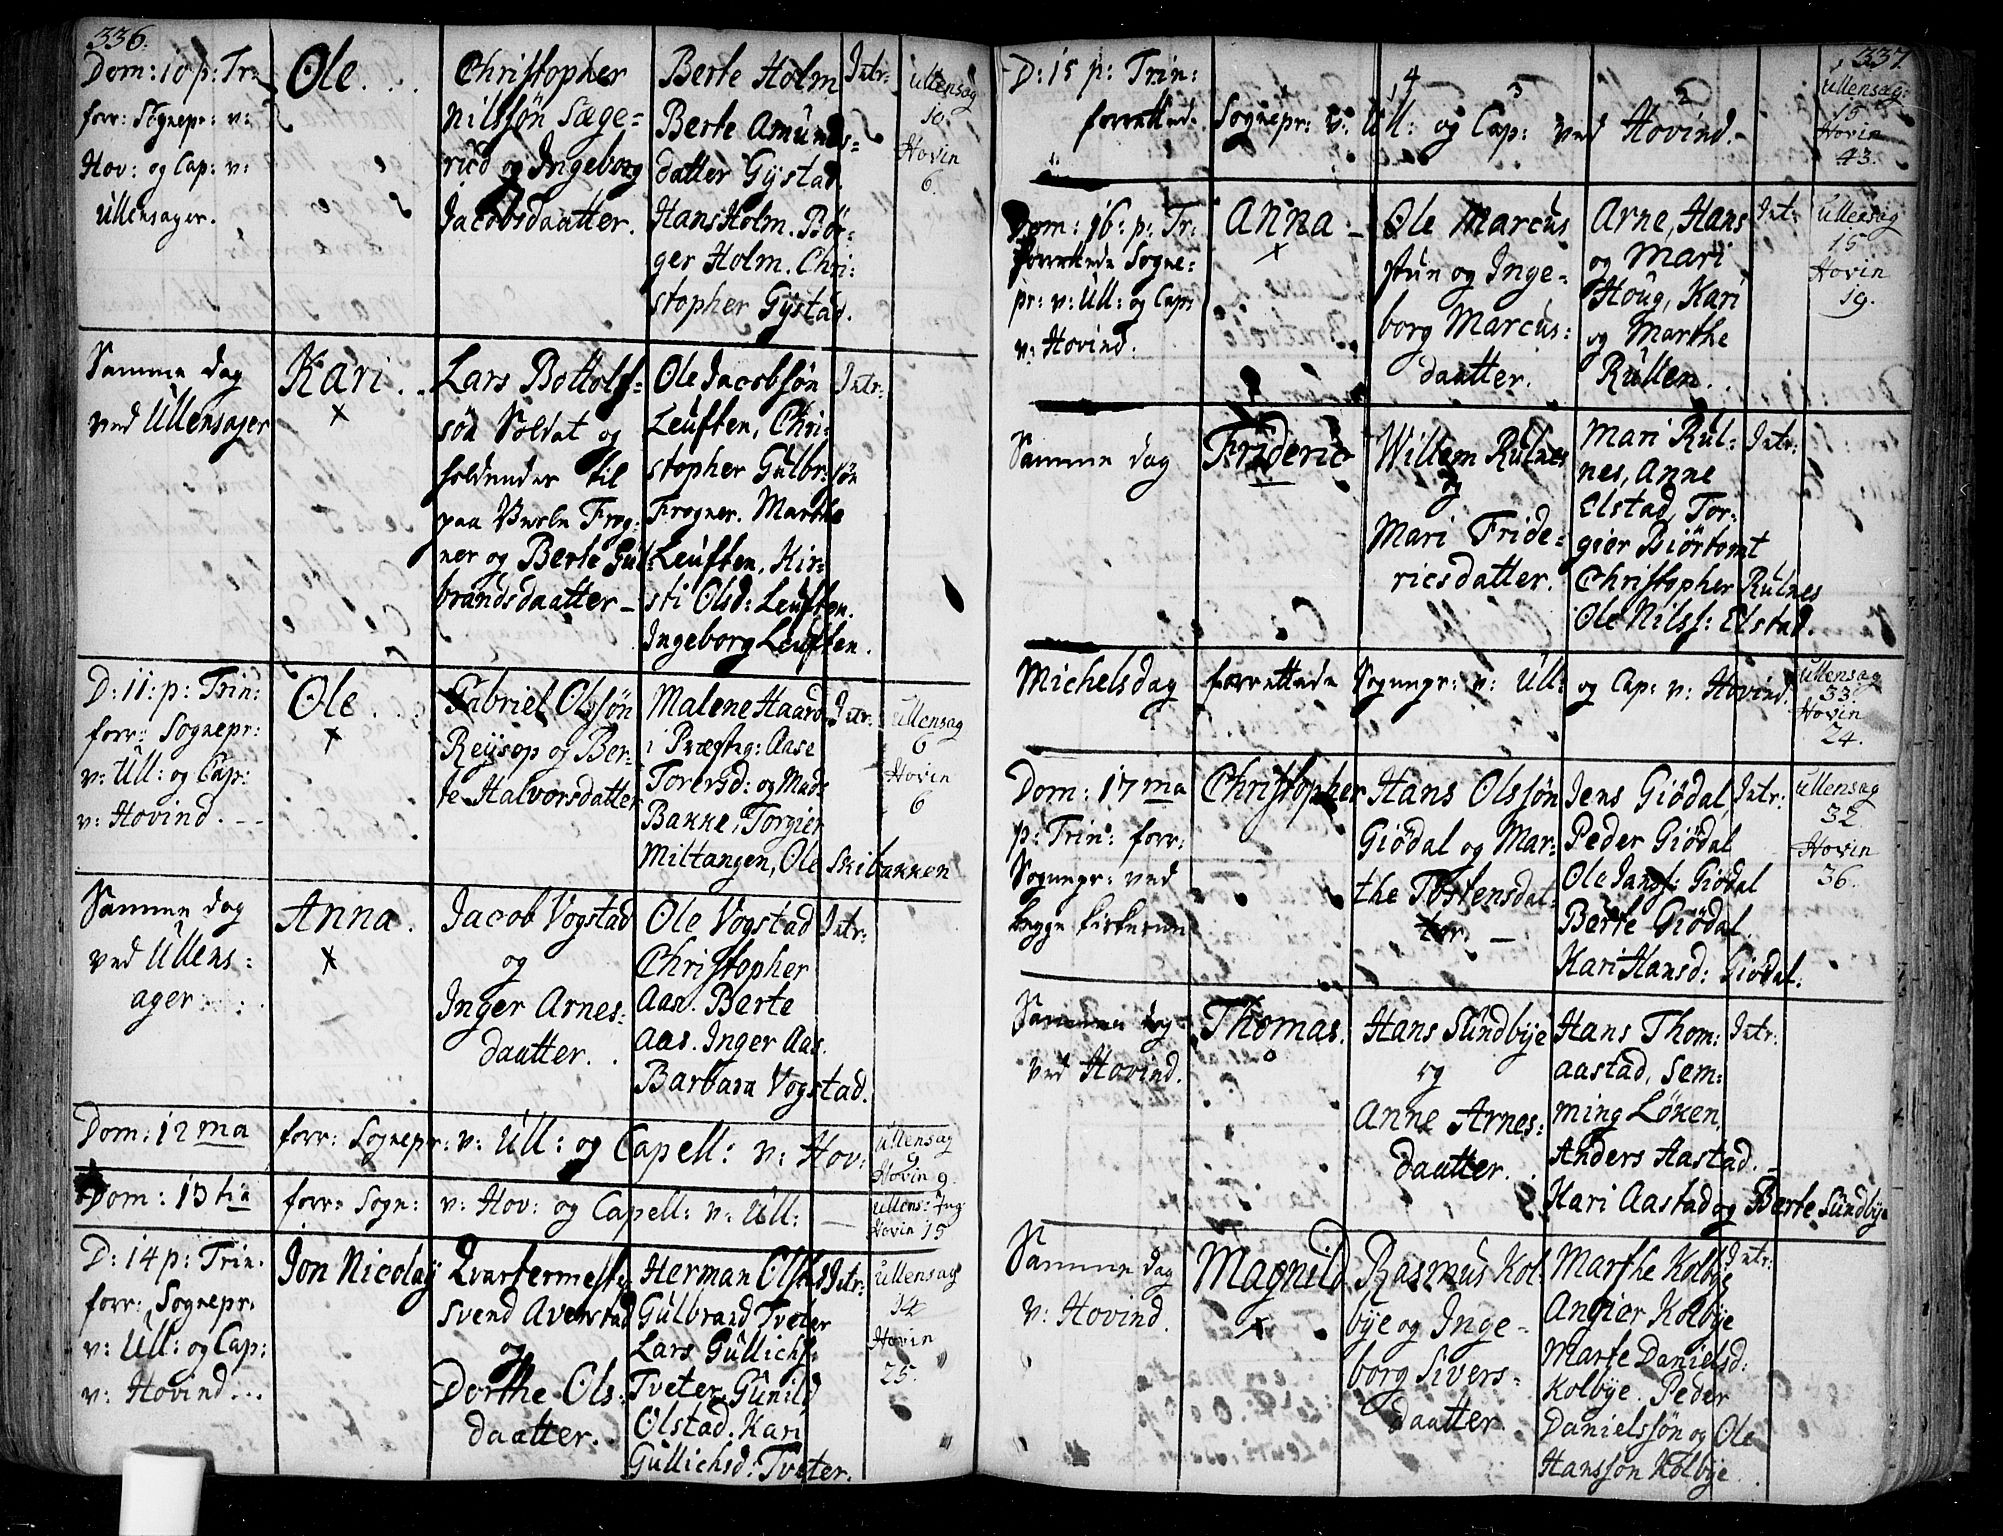 336.
Dom: 10 p: Tr:
forr: Sognepr: v:
Hov: og Cap: v:
Ullensager.
Ole
Christopher
Nilssön Sage-
rud og Ingeborg
Jacobsdaatter.
Berte Holm
Berte Amunds-
datter Gystad.
Hans Holm. Bör-
ger Holm. Chri-
stopher Gystad.
Intr:
Ullensag
10.
Hovin
6.
Samme dag
ved Ullensager
Kari
Lars Bottolf-
sön Soldat og
holdendes til
paa Frog-
ner og Berte Gul-
brandsdaatter
Ole Jacobsön
Leuften, Chri-
stopher Gulbr: sön
Frogner. Marthe
Leuften, Kir-
sti Olsd: Leuften.
Ingeborg Leuften.
Intr:
D: 11: p: Trin:
forr: Sognepr:
v: Ull: og Cap:
v: Hovind.
Ole
Gabriel Olssön
Reijsop og Ber-
te Halvorsdatter
Malene Haard
i Præsteg: Aase
Torersd: og Mads
Bakke, Torgier
Miltangen, Ole Skibakken
Intr:
Ullensag
6
Hovin
6
Samme dag
ved Ullens-
ager
Anna.
Jacob Vogstad
og
Inger Arnes-
daatter.
Ole Vogstad
Christopher
Aas. Berte
Aas. Inger Aas.
Barbara Vogstad.
Intr:
Dom: 12 ma
forr: Sognepr: v: Ull: og Capell: v: Hov:
Ullensag
9
Hovin 9.
Dom: 13 tia
forr: Sogn: v: Hov: og Capell: v: Ull:
Ullens: Ing
Hovin 15
D: 14 p: Trin.
forr: Sognepr.
v: Ull: og Cap:
v: Hovind
Jon Nicolaÿ
Qvartermester
Svend Averstad
og
Dorthe Ols-
daatter.
Herman Olstad
Gulbrand Tveter
Lars Gullichs:
Tveter, Gunild
Olstad. Kari
Gullichsd: Tveter.
Intr:
Ullensag
14
Hovin
25.
337.
D: 15 p: Trin:
forrettede Sognepr: v: Ull: og Cap: ved Hovind.
Ullensag:
15
Hovin
43.
Dom: 16: p: Tr:
forrettede Sogne-
pr: v: Ull: og Cap:
v: Hovind.
Anna
Ole Marcus
stun og Inge-
borg Marcus-
daatter.
Arne, Hans
og Mari
Houg, Kari
og Marthe
Rullen.
Int:
Ullensag
15
Hovin
19.
Samme dag
Frideric
Willem Rulnes
og
Mari Fride-
ricsdatter.
Mari Rul-
nes, Anne
Elstad, Tor-
gier Biörtomt
Christopher Rulnes
Ole Nilss: Elstad.
Intr:
Michelsdag forrettede Sognepr: v: Ull: og Cap: v: Hovind.
Ullensag
33.
Hovin
24.
Dom: 17 ma
p: Trin: forr:
Sognepr: ved
begge kirkerne
Christopher
Hans Olssön
Giödal og Mar-
the Tostensdat-
ter.
Jens Giödal
Peder Giödal
Ole Jansf: Giödal
Berte Giödal.
Kari Hansd: Giödal.
Intr:
Ullensag
32.
Hovin
36.
Samme dag
ved Hovind.
Thomas.
Hans Sundbÿe
og
Anne Arnes-
daatter.
Hans Thom:
aastad, Sem-
ming Löken,
Anders Aastad.
Kari Aastad og Berte Sundbÿe
Intr:
Samme dag
v: Hovind.
Magnild
Rasmus Kol-
bÿe og Inge-
borg Sivers-
daatter
Marthe Kolbÿe
Angier Kolbÿe
Marte Danielsd:
Kolbÿe. Peder
Danielssön og Ole
Hanssön Kolbÿe
Intr: